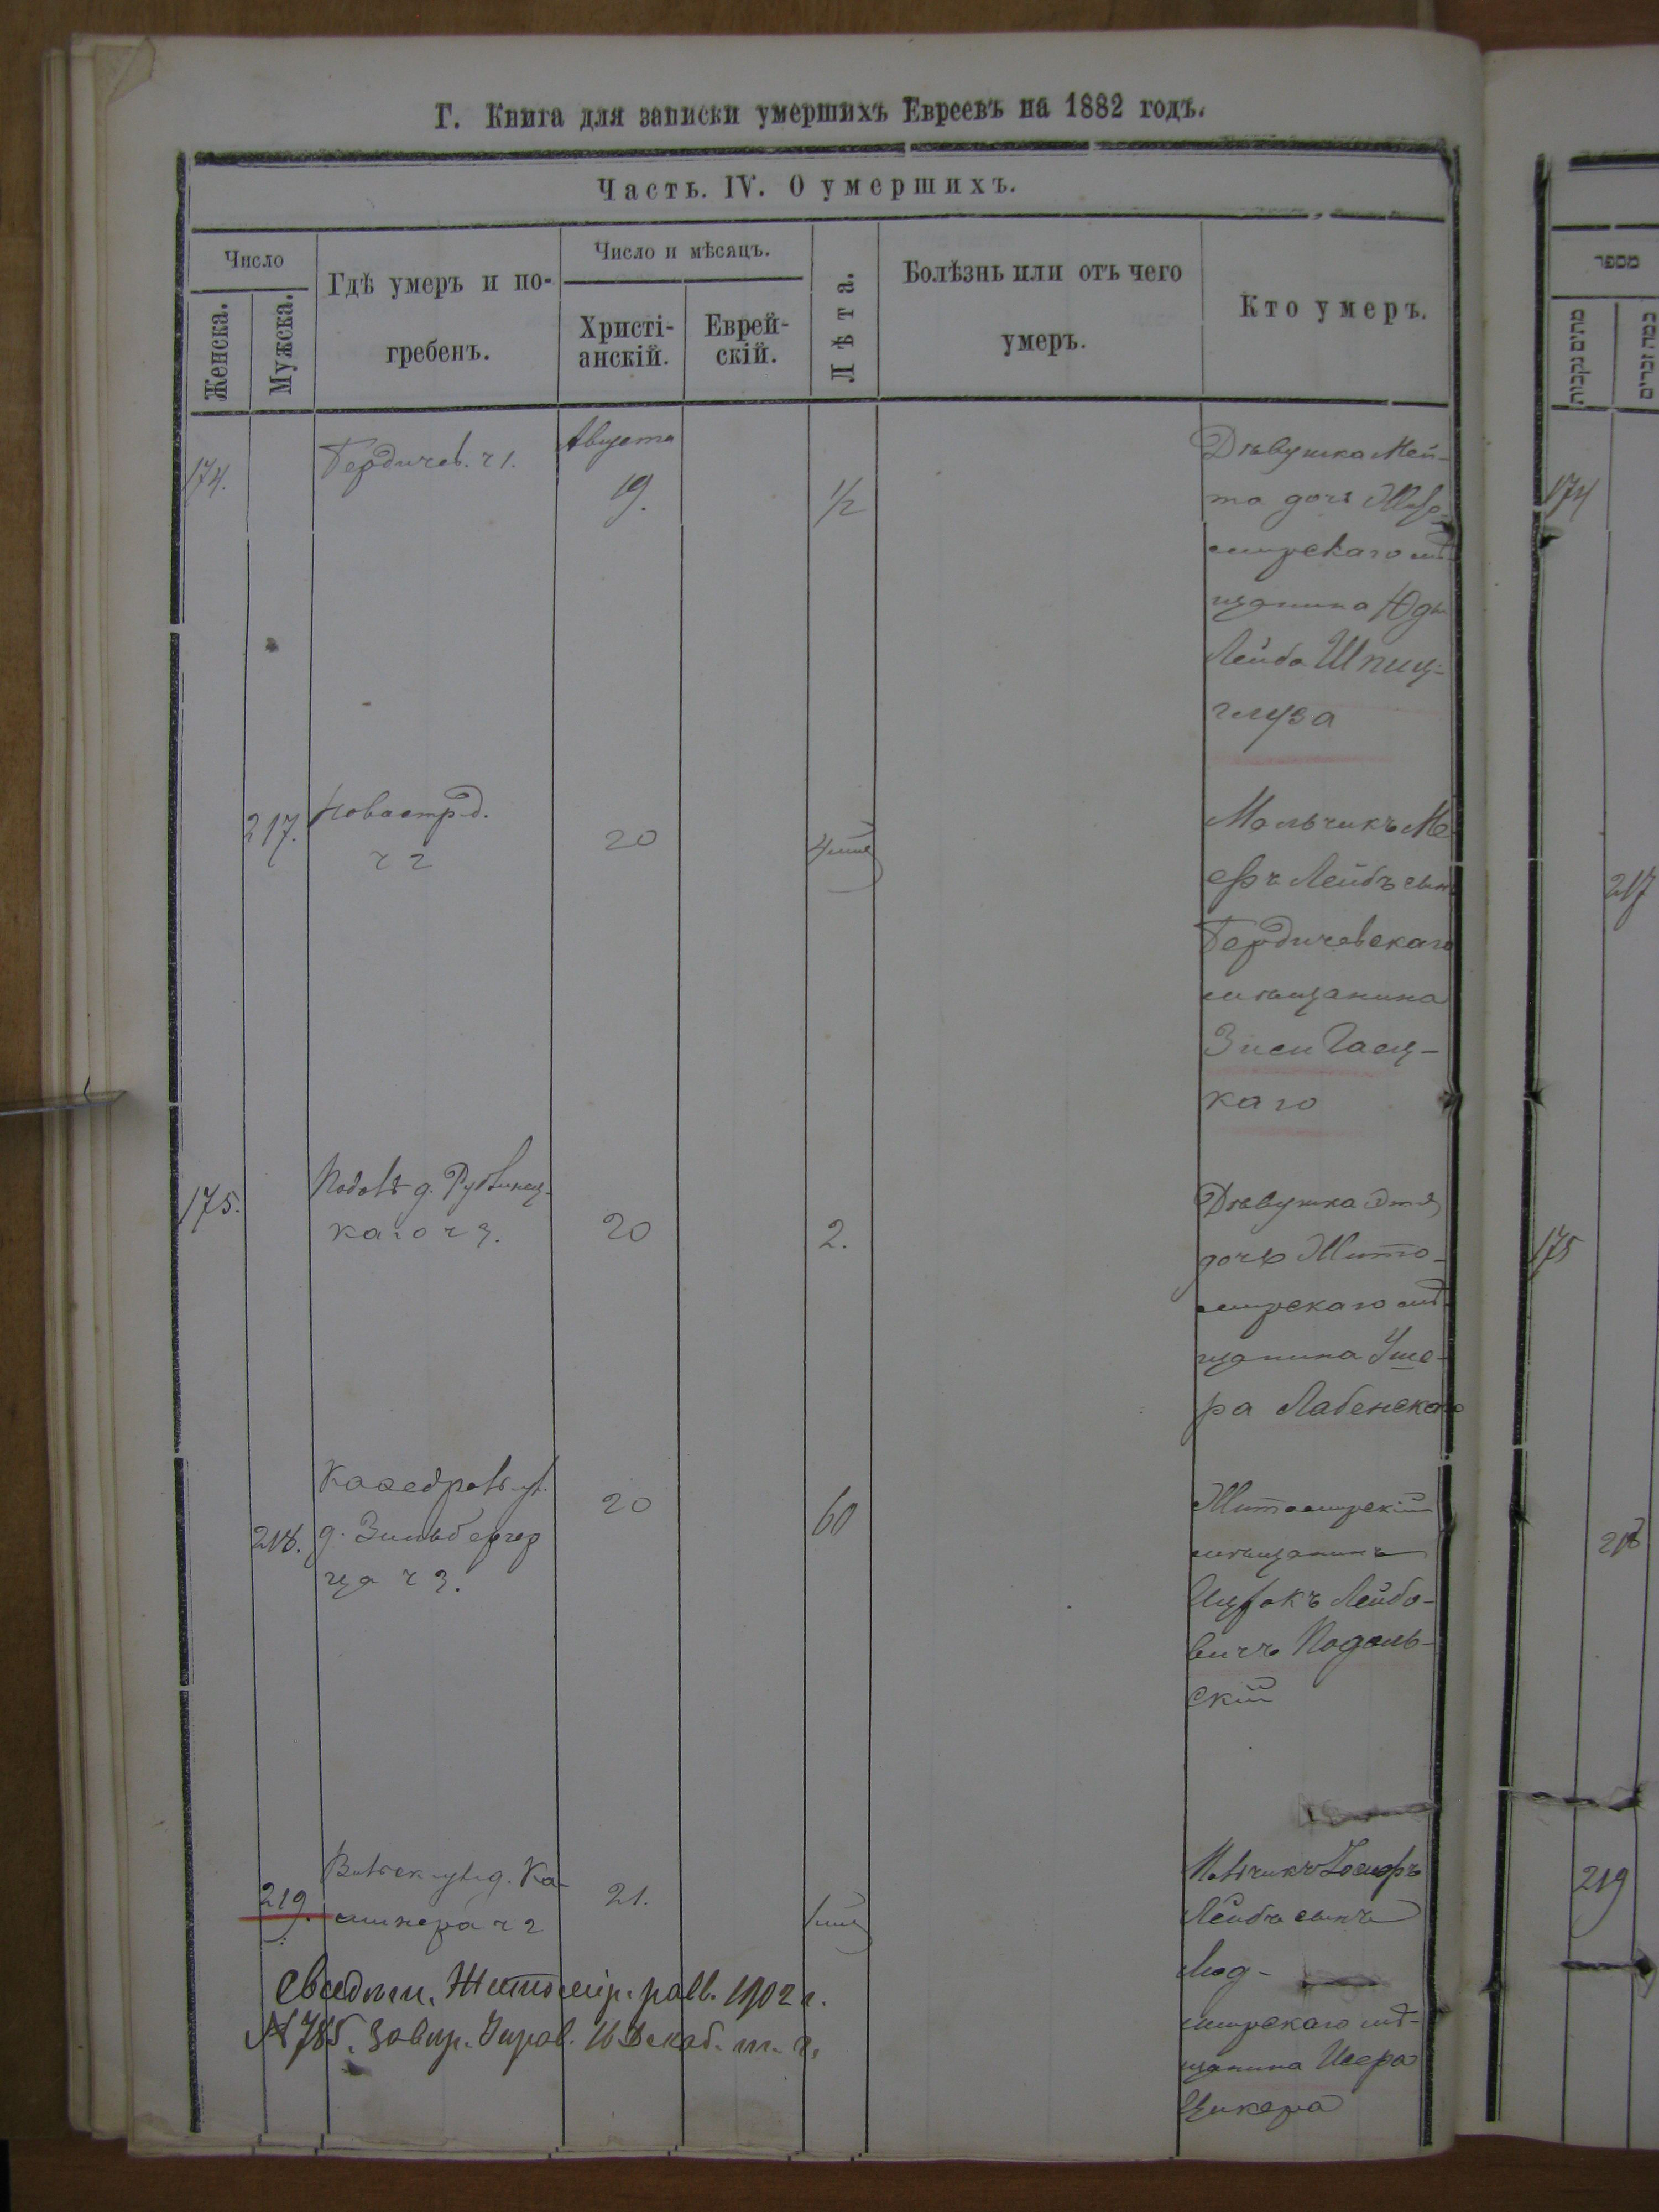 Г. Книга для записки умершихъ Евреевъ на 1882 годъ.
Часть. IV. О умершихъ.
Число
Женска.
Мужска.
Гдѣ умеръ и по-
гребенъ.
Число и мѣсяцъ.
Христі-
анскій.
Еврей-
скій.
Лѣта.
Болѣзнь или отъ чего
умеръ.
Кто умеръ.
174.
Бердичев. ч 1.
Августа
19.
1/2
Дѣвушка Мей-
та дочь
мирскаго мѣ-
щанина Юды
Лейба Шпиц-
глуза
217.
ч 2
20
Мальчикъ Ме-
еръ Лейбъ сынъ
Бердичевскаго
мѣщанина
Зиси Гаец-
каго
175.
д. Рубинец-
каго ч 3.
20
2.
Дѣвушка Этя
дочь Жито-
мирскаго мѣ-
щанина Уше-
ра Лабенскаго
218.
Каѳедралъ. ул.
д. Зильбергер
ца ч 3.
20
60
Житомирскій
мѣщанинъ
Ицхокъ Лейбо-
вичъ Подоль-
скій
219.
д. Ка-
минера ч 2
21.
Іосифъ
Лейбъ сынъ
мирскаго мѣ-
щанина Исера
Цикера
Свидѣт. Житомір. равв. 1902 г.
№ 785. Завир. Управ. 16 Декаб. т. г.
מספר
מתים נקבות
כמה זכרים
174
217
175
218
219